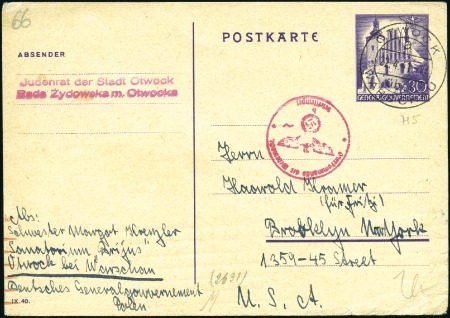 66
POSTKARTE
ABSENDER
Judenrat der Stadt Otwock
Rada Żydowska m. Otwocka
OTWOCK
30
GENERALGOUVERNEMENT
Herrn
Harold Kramer
(für Fritz)
Brooklyn New York
1359-45 Street
U.S.A.
Abs:
Schwester Margot Krenzler
Sanatorium "Brijus"
Otwock bei Warschau
Deutsches Generalgouvernement
Polen
(2631)
IX.40.